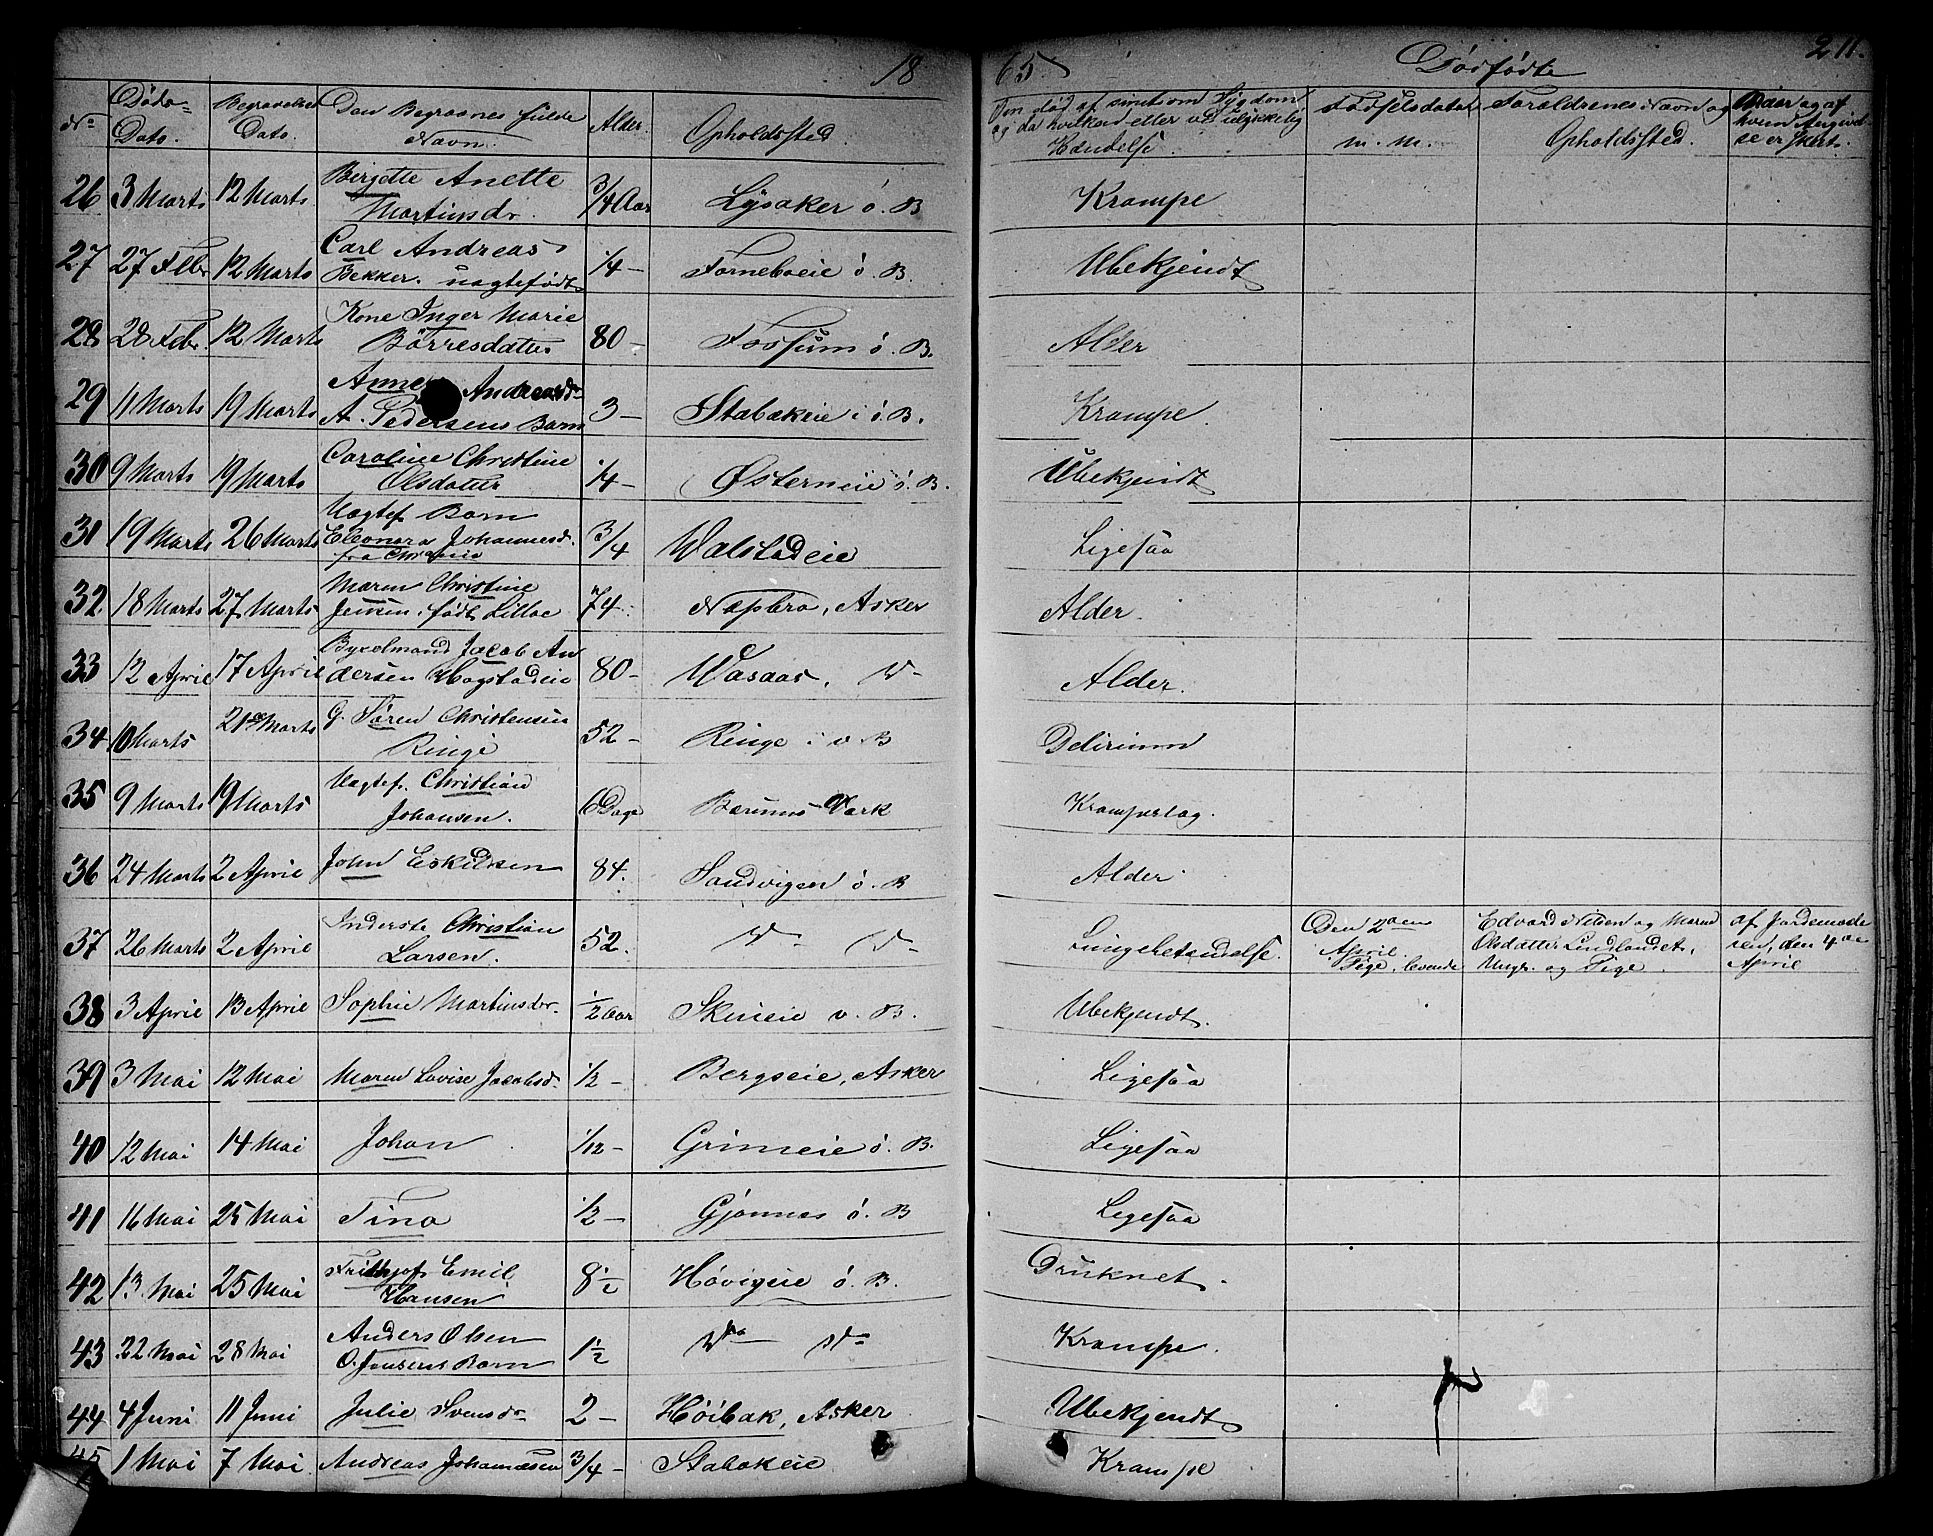 18 65. Dødfødte 211.
No Døds-Dato. Begravelses Dato. Den Begravnes fulde Navn. Alder. Opholdssted. Om død af smitsom Sygdom, og da hvilken eller ved ulykkelig Hændelse. Fødselsdatum m. m. Forældrenes Navn og Opholdssted. Naar og af hvem Angivelse er skeet.
26 3 Marts 12 Marts Birgitte Anette Martinsdr. 3/4 Aar Lysaker ö. B Krampe
27 27 Febr 12 Marts Carl Andreas Bekker. uægtefødt 1/4 - Forneboeie ö. B. Ubekjendt
28 28 Febr. 12 Marts Kone Inger Marie Börresdatter 80 - Fossum ö. B. Alder
29 11 Marts 19 Marts Anne Andreasdr A. Pedersens Barn 3 - Stabækeie i ö. B. Krampe.
30 9 Marts 19 Marts Caroline Christine Olsdatter 1/4 - Østerneie ö. B. Ubekjendt
31 19 Marts 26 Marts Uægtef. Barn Eleonora Johannesd. fra Chr.ania 3/4 Walstadeie Ligesaa
32 18 Marts 27 Marts Maren Christine Jensen, født Lilloe 74. Næsbro, Asker Alder.
33 12 April 17 April Bygselmand Jacob Andersen Hogstadeie 80 - Wasaas, D- Alder.
34 10 Marts 21 Marts G. Sören Christensen Ringi 52 - Ringe i v. B Delirium
35 9 Marts 19 Marts Uægtef. Christian Johansen. 6 Dage Bærums Værk Krampeslag.
36 24 Marts 2 April John Eskildsen 84. Sandvigen ö. B Alder.
37 26 Marts 2 April Inderste Christian Larsen. 52. D- D- Lungebetændelse. Den 2den April. Pige, levende Edvard Nilsen og Maren Olsdatter Lindlandet, Ungk. og Pige. af Jordemoderen, den 4de April
38 3 April 13 April Sophie Martinsdr. 1/2 Aar Skuieie v. B. Ubekjendt.
39 3 Mai 12 Mai Maren Lovise Jacobsd. 1/2 - Bergseie, Asker Ligesaa
40 12 Mai 14 Mai Johan 1/12 - Grimeie ö. B. Ligesaa
41 16 Mai 25 Mai Tina 1/2 - Gjønnes ö. B Ligesaa
42 13. Mai 25 Mai Frithjof Emil Hansen 8 1/2 Høvigeie ö. B. Druknet.
43 22 Mai 28 Mai Anders Olsen O. Jensens Barn 1 1/2 Do Do Krampe.
44 4 Juni 11 Juni Julie Svensdr 2 - Høibak, Asker Ubekjendt
45 1 Mai 7 Mai. Andreas Johannesen 3/4 - Stabækeie Krampe